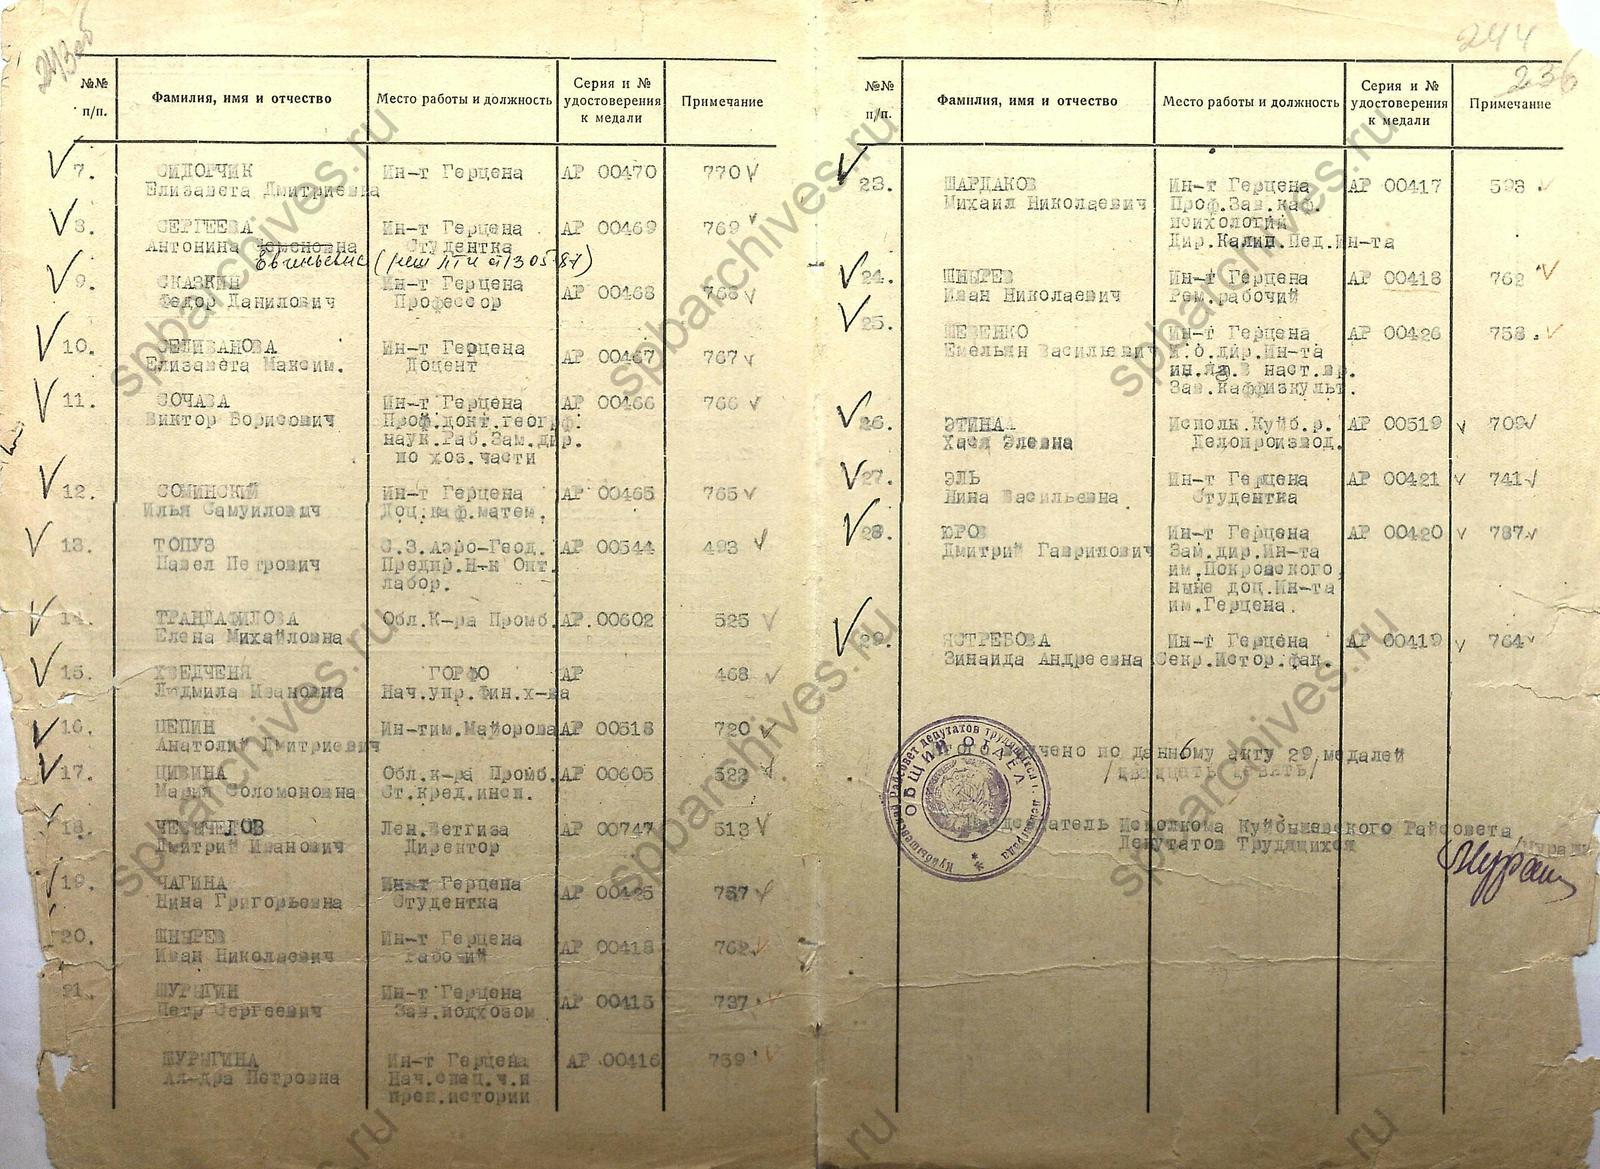 243об
№№ п/п.
Фамилия, имя и отчество
Место работы и должность
Серия и № удостоверения к медали
Примечание
7. СИДОРЧИК Ин-т Герцена АР 00470 770
Елизавета Дмитриевна
8. СЕРГЕЕВА Ин-т Герцена АР 00469 769
Антонина Семеновна Студентка
Евгеньевна
9. СКАЗКИН Ин-т Герцена АР 00468 768
Федор Данилович Профессор
10. СЕЛИВАНОВА Ин-т Герцена АР 00467 767
Елизавета Максим. Доцент
11. СОЧАВА Ин-т Герцена АР 00466 766
Виктор Борисович Проф.докт.геогр.
наук.Раб.Зам.дир.
по хоз.части
12. СОМИНСКИЙ Ин-т Герцена АР 00465 765
Илья Самуилович Доц.каф.матем.
13. ТОПУЗ С.З.Аэро-Геод. АР 00544 493
Павел Петрович Предпр.Н-к Опт.
лабор.
14. ТРАНДАФИЛОВА Обл.К-ра Промб. АР 00602 525
Елена Михайловна
15. ХВЕДЧЕНЯ ГОРФО АР 468
Людмила Ивановна Нач.упр.фин.х-ва
16. ЦЕПИН Ин-тим.Майорова АР 00518 720
Анатолий Дмитриевич
17. ЦИВИНА Обл.к-ра Промб. АР 00605 522
Мария Соломоновна Ст.кред.инсп.
18. Лен.Сетгиза АР 00747 513
Дмитрий Иванович Директор
19. ЧАГИНА Ин-т Герцена АР 00425 757
Нина Григорьевна Студентка
20. ШНЫРЕВ Ин-т Герцена АР 00418 762
Иван Николаевич Рабочий
21. ШУРЫГИН Ин-т Герцена АР 00415 737
Петр Сергеевич Зав.подхозом
ШУРЫГИНА Ин-т Герцена АР 00416 759
Ал-дра Петровна Нач.спец.ч.и
преп.истории
244
236
№№ п/п.
Фамилия, имя и отчество
Место работы и должность
Серия и № удостоверения к медали
Примечание
23. ШАРДАКОВ Ин-т Герцена АР 00417 593
Михаил Николаевич Проф.Зав.каф.
психологии
Дир.Калин.Пед.Ин-та
24. ШНЫРЕВ Ин-т Герцена АР 00418 762
Иван Николаевич Рем.рабочий
25. ШЕВЕНКО Ин-т Герцена АР 00426 758.
Емельян Васильевич И.о.дир.Ин-та
ин.яз.В наст.вр.
Зав.каффизкульт.
26. ЭТИНА Исполк.Куйб.р. АР 00519 709
Хася Элевна Делопроизвод.
27. ЭЛЬ Ин-т Герцена АР 00421 741
Нина Васильевна Студентка
28. ЮРОВ Ин-т Герцена АР 00420 787
Дмитрий Гаврилович Зам.дир.Ин-та
им.Покровского
ныне доц.Ин-та
им.Герцена.
29. ЯСТРЕБОВА Ин-т Герцена АР 00419 764
Зинаида Андреевна Секр.Истор.фак.
по данному акту 29 медалей
/двадцать девять/
Исполкома Куйбышевского Райсовета
Депутатов Трудящихся
Куйбышевский Райсовет депутатов трудящихся г. Ленинграда
ОБЩИЙ ОТДЕЛ
spbarchives.ru
spbarchives.ru
spbarchives.ru
spbarchives.ru
spbarchives.ru
spbarchives.ru